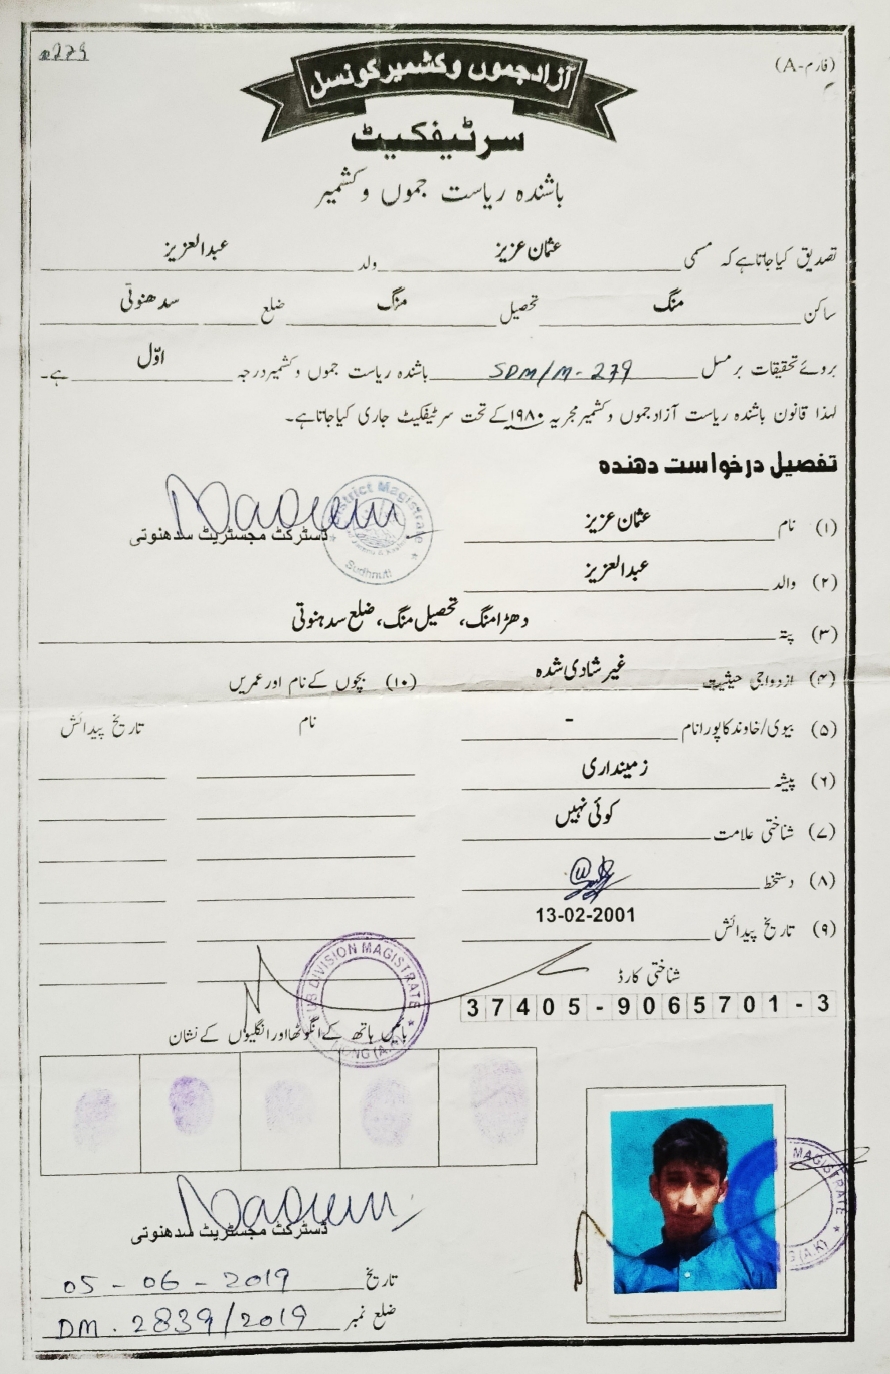 279
(فارم-A)
آزاد جموں و کشمیر کونسل
سرٹیفکیٹ
باشندہ ریاست جموں و کشمیر
تصدیق کیا جاتا ہے کہ مسمی عثمان عزیز ولد عبدالعزیز
ساکن منگ تحصیل منگ ضلع سدھنوتی
بروئے تحقیقات برمسل SDM/M-279 باشندہ ریاست جموں و کشمیر درجہ اوّل ہے۔
لہذا قانون باشندہ ریاست آزاد جموں و کشمیر مجریہ ۱۹۸۰ کے تحت سرٹیفکیٹ جاری کیا جاتا ہے۔
تفصیل درخواست دھندہ
(۱) نام عثمان عزیز
District Magistrate
Sudhnuti
ڈسٹرکٹ مجسٹریٹ سدھنوتی
(۲) والد عبدالعزیز
(۳) پتہ دھڑا منگ، تحصیل منگ، ضلع سدہنوتی
(۴) ازدواجی حیثیت غیر شادی شدہ
(۱۰) بچوں کے نام اور عمریں
نام تاریخ پیدائش
(۵) بیوی/خاوند کا پورا نام -
(۶) پیشہ زمینداری
(۷) شناختی علامت کوئی نہیں
(۸) دستخط
(۹) تاریخ پیدائش 13-02-2001
شناختی کارڈ
37405-9065701-3
SUB DIVISION MAGISTRATE
MONG (A.K)
بائیں ہاتھ کے انگوٹھا اور انگلیوں کے نشان
MAGISTRATE
G (A.K)
ڈسٹرکٹ مجسٹریٹ سدھنوتی
تاریخ 05-06-2019
ضلع نمبر DM. 2839/2019